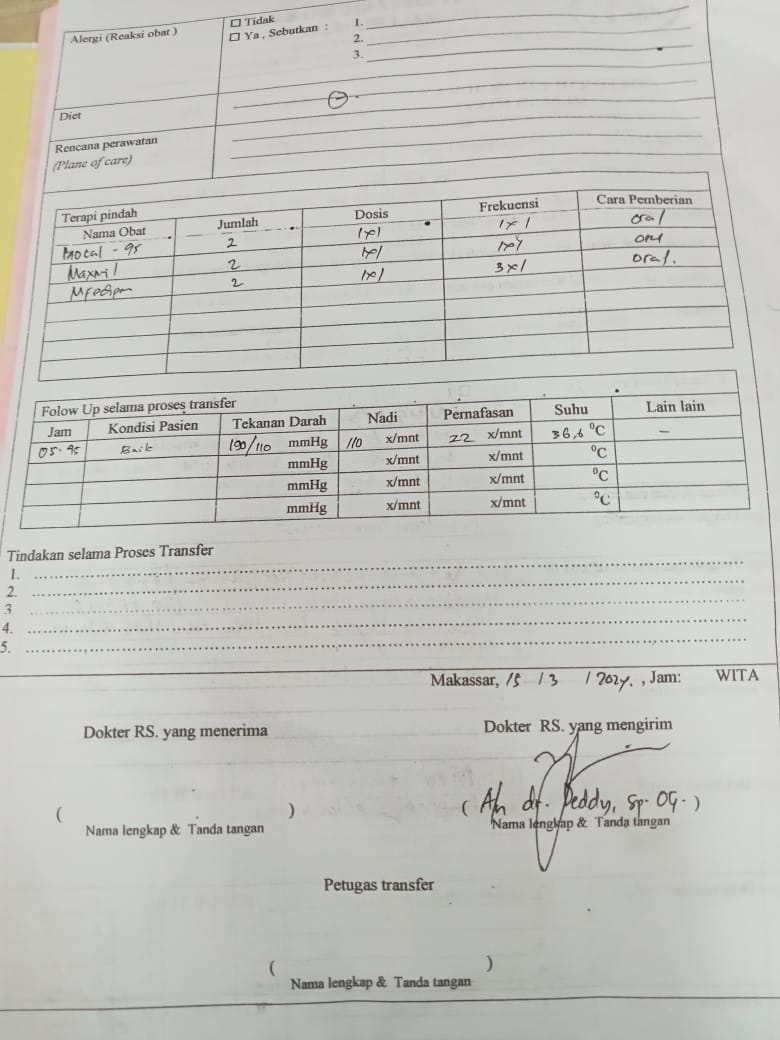 Alergi (Reaksi obat )
☐ Tidak
☐ Ya , Sebutkan :
1.
2.
3.
Diet
Rencana perawatan
(Plane of care)
Terapi pindah
Nama Obat Jumlah Dosis Frekuensi Cara Pemberian
2 1x1 1x1 oral
2 1x1 oral
2 1x1 3x1 oral.
Folow Up selama proses transfer
Jam Kondisi Pasien Tekanan Darah Nadi Pernafasan Suhu Lain lain
Baik 190/110 mmHg 110 x/mnt 22 x/mnt 36,6 ⁰C –
mmHg x/mnt x/mnt ⁰C
mmHg x/mnt x/mnt ⁰C
mmHg x/mnt x/mnt ⁰C
Tindakan selama Proses Transfer
1.
2.
3
4.
5.
Makassar, 15 / 3 / 2024. , Jam: WITA
Dokter RS. yang menerima Dokter RS. yang mengirim
( ) ( dr. Deddy, Sp. OG. )
Nama lengkap & Tanda tangan Nama lengkap & Tanda tangan
Petugas transfer
( )
Nama lengkap & Tanda tangan